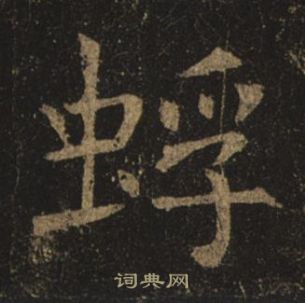 蜉
词典网